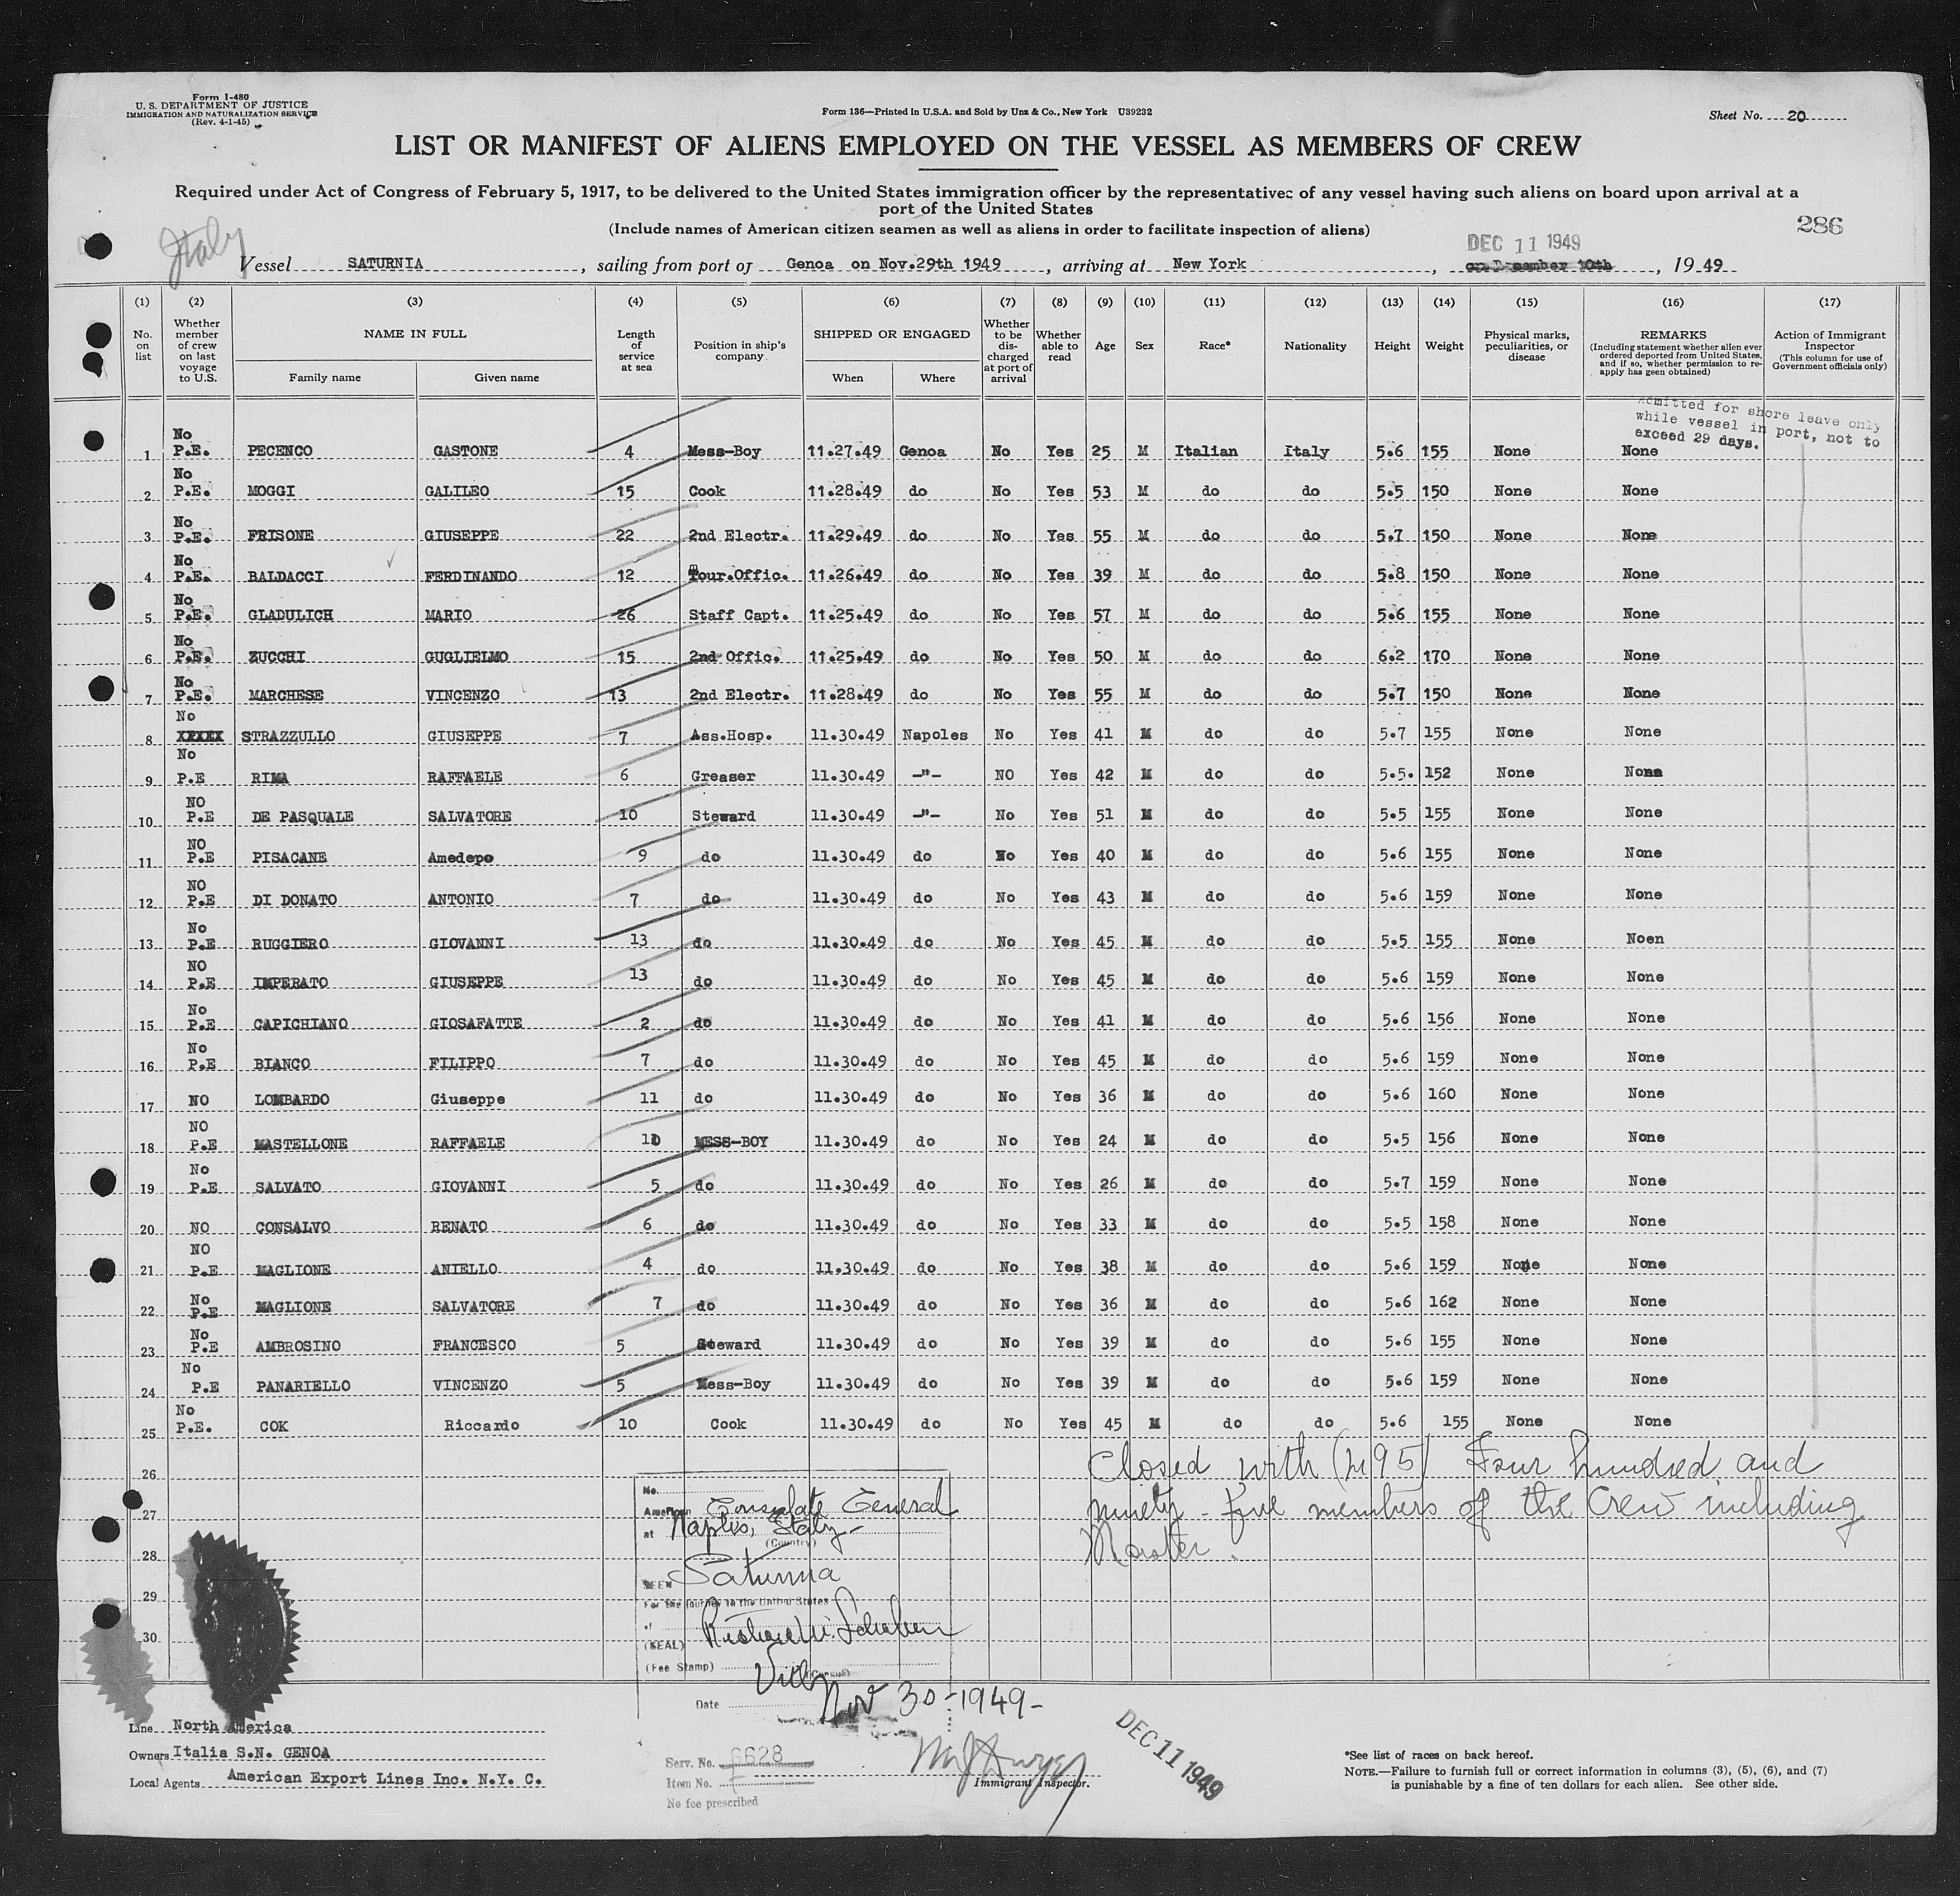 Form I-480
U. S. DEPARTMENT OF JUSTICE
IMMIGRATION AND NATURALIZATION SERVICE
(Rev. 4-1-45)
Form 136—Printed in U.S.A. and Sold by Unz & Co., New York U39232
Sheet No. 20
LIST OR MANIFEST OF ALIENS EMPLOYED ON THE VESSEL AS MEMBERS OF CREW
Required under Act of Congress of February 5, 1917, to be delivered to the United States immigration officer by the representatives of any vessel having such aliens on board upon arrival at a
port of the United States
(Include names of American citizen seamen as well as aliens in order to facilitate inspection of aliens)
286
Italy
DEC 11 1949
Vessel SATURNIA, sailing from port of Genoa on Nov.29th 1949, arriving at New York, on December 10th, 1949
(1) (2) (3) (4) (5) (6) (7) (8) (9) (10) (11) (12) (13) (14) (15) (16) (17)
No. on list | Whether member of crew on last voyage to U.S. | NAME IN FULL Family name Given name | Length of service at sea | Position in ship's company | SHIPPED OR ENGAGED When Where | Whether to be discharged at port of arrival | Whether able to read | Age | Sex | Race* | Nationality | Height | Weight | Physical marks, peculiarities, or disease | REMARKS (Including statement whether alien ever ordered deported from United States, and if so, whether permission to re-apply has geen obtained) | Action of Immigrant Inspector (This column for use of Government officials only)
Admitted for shore leave only
while vessel in port, not to
exceed 29 days.
1 No P.E. PECENCO GASTONE 4 Mess-Boy 11.27.49 Genoa No Yes 25 M Italian Italy 5.6 155 None None
2 No P.E. MOGGI GALILEO 15 Cook 11.28.49 do No Yes 53 M do do 5.5 150 None None
3 No P.E. FRISONE GIUSEPPE 22 2nd Electr. 11.29.49 do No Yes 55 M do do 5.7 150 None None
4 No P.E. BALDACCI FERDINANDO 12 Tour.Offic. 11.26.49 do No Yes 39 M do do 5.8 150 None None
5 No P.E. GLADULICH MARIO 26 Staff Capt. 11.25.49 do No Yes 57 M do do 5.6 155 None None
6 No P.E. ZUCCHI GUGLIELMO 15 2nd Offic. 11.25.49 do No Yes 50 M do do 6.2 170 None None
7 No P.E. MARCHESE VINCENZO 13 2nd Electr. 11.28.49 do No Yes 55 M do do 5.7 150 None None
8 No XXXXX STRAZZULLO GIUSEPPE 7 Ass.Hosp. 11.30.49 Napoles No Yes 41 M do do 5.7 155 None None
9 No P.E RIMA RAFFAELE 6 Greaser 11.30.49 -"- NO Yes 42 M do do 5.5. 152 None None
10 NO P.E DE PASQUALE SALVATORE 10 Steward 11.30.49 -"- No Yes 51 M do do 5.5 155 None None
11 NO P.E PISACANE Amedepo 9 do 11.30.49 do No Yes 40 M do do 5.6 155 None None
12 NO P.E DI DONATO ANTONIO 7 do 11.30.49 do No Yes 43 M do do 5.6 159 None None
13 No P.E RUGGIERO GIOVANNI 13 do 11.30.49 do No Yes 45 M do do 5.5 155 None Noen
14 NO P.E IMPERATO GIUSEPPE 13 do 11.30.49 do No Yes 45 M do do 5.6 159 None None
15 No P.E CAPICHIANO GIOSAFATTE 2 do 11.30.49 do No Yes 41 M do do 5.6 156 None None
16 No P.E BIANCO FILIPPO 7 do 11.30.49 do No Yes 45 M do do 5.6 159 None None
17 NO LOMBARDO Giuseppe 11 do 11.30.49 do No Yes 36 M do do 5.6 160 None None
18 NO P.E MASTELLONE RAFFAELE 10 MESS-BOY 11.30.49 do No Yes 24 M do do 5.5 156 None None
19 No P.E SALVATO GIOVANNI 5 do 11.30.49 do No Yes 26 M do do 5.7 159 None None
20 NO CONSALVO RENATO 6 do 11.30.49 do No Yes 33 M do do 5.5 158 None None
21 NO P.E MAGLIONE ANIELLO 4 do 11.30.49 do No Yes 38 M do do 5.6 159 None None
22 No P.E MAGLIONE SALVATORE 7 do 11.30.49 do No Yes 36 M do do 5.6 162 None None
23 No P.E AMBROSINO FRANCESCO 5 Steward 11.30.49 do No Yes 39 M do do 5.6 155 None None
24 No P.E PANARIELLO VINCENZO 5 Mess-Boy 11.30.49 do No Yes 39 M do do 5.6 159 None None
25 No P.E. COK Riccardo 10 Cook 11.30.49 do No Yes 45 M do do 5.6 155 None None
26
27
28
29
30
Closed with (495) Four hundred and
ninety-five members of the Crew including
Master.
No.
American Consulate General
at Naples, Italy-
(Country)
SEEN Saturnia
For the journey to the United States
of
(SEAL)
(Fee Stamp)
(Consul)
Date Nov 30-1949-
Line North America
Owners Italia S.N. GENOA
Local Agents American Export Lines Inc. N.Y. C.
Serv. No. 6628
Item No.
No fee prescribed
Immigrant Inspector.
DEC 11 1949
*See list of races on back hereof.
NOTE.—Failure to furnish full or correct information in columns (3), (5), (6), and (7)
is punishable by a fine of ten dollars for each alien. See other side.